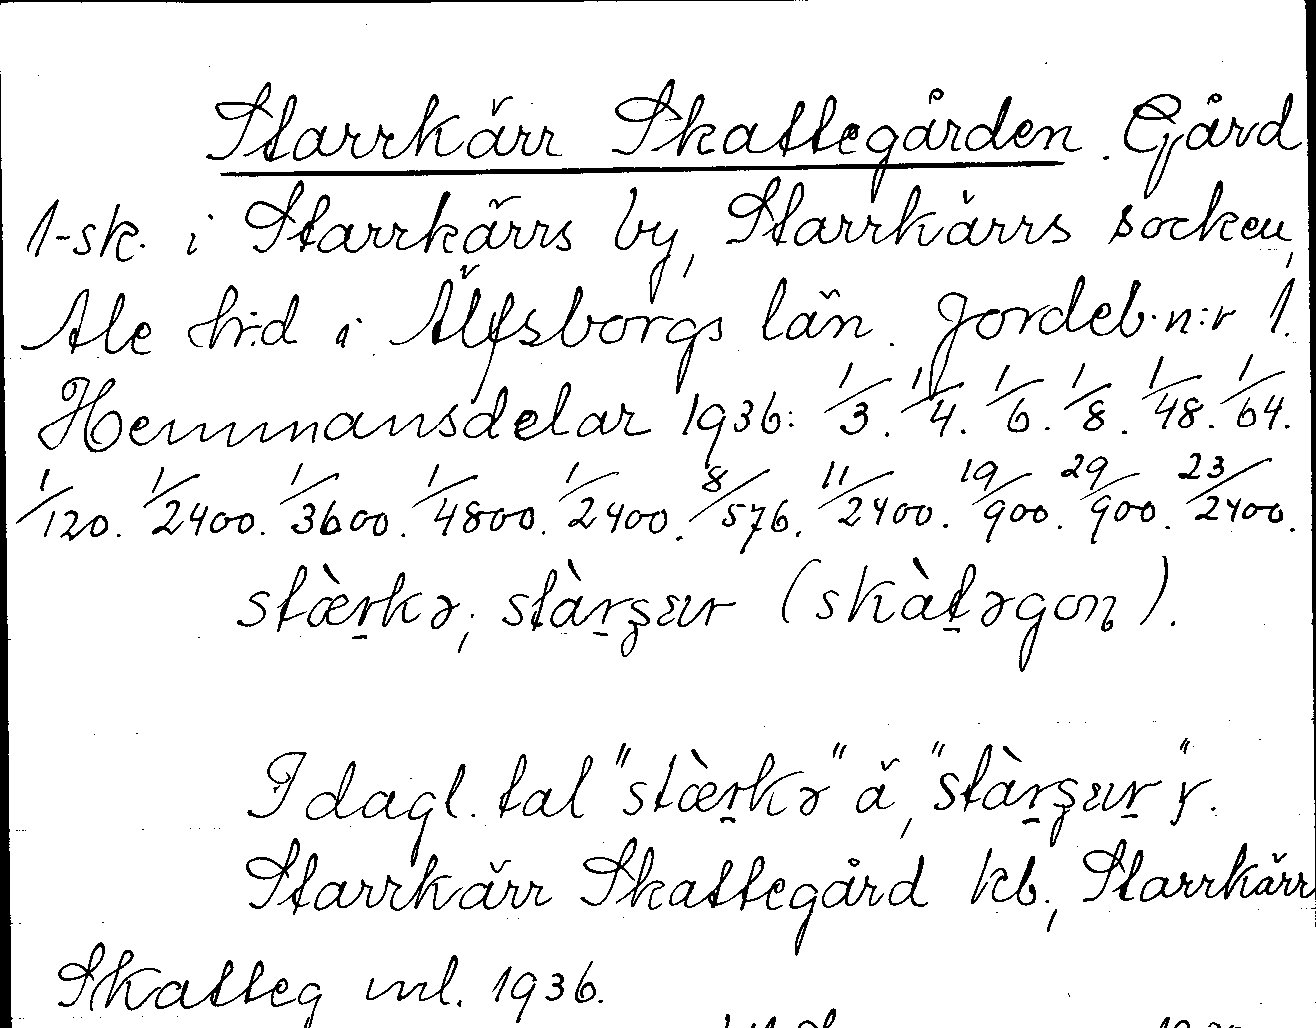 Starrkärr Skattegården. Gård
1-sk. i Starrkärrs by, Starrkärrs socken,
Ale h:d i Älfsborgs län. Jordeb.n:r 1.
Hemmansdelar 1936: 1/3. 1/4. 1/6. 1/8. 1/48. 1/64.
1/120. 1/2400. 1/3600. 1/4800. 1/2400. 8/576. 11/2400. 19/900. 29/900. 23/2400.
stæ̀rkə; (skàtəgoɳ).
I dagl. tal "stæ̀rkə" ä,
Starrkärr Skattegård kb., Starrkärr
Skatteg ml. 1936.